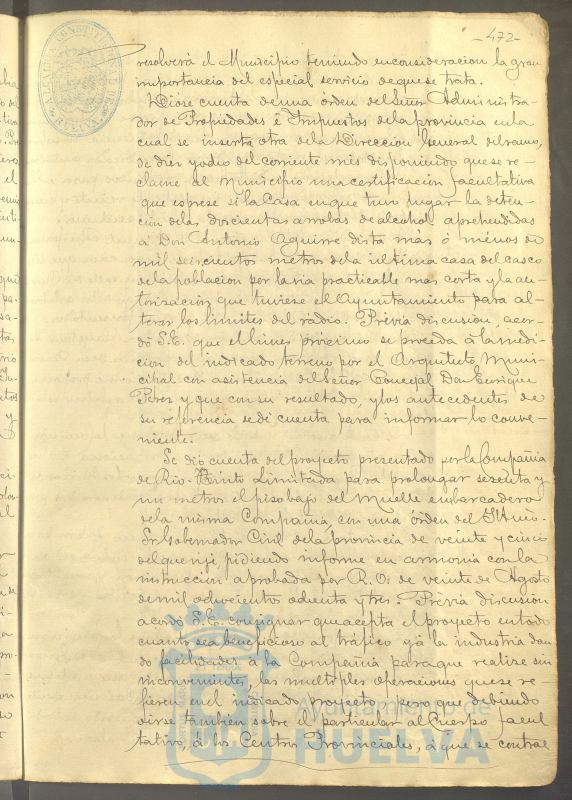 -472-
resolverá el Municipio teniendo en consideracion la gran
importancia del especial servicio de que se trata.
Diose cuenta de una órden del Señor Administra-
dor de Propiedades é Impuestos de la provincia en la
cual se inserta otra de la Direccion General del ramo,
de diez y ocho del corriente mes disponiendo que se re-
clame al Municipio una certificacion facultativa
que esprese si la Casa en que tuvo lugar la deten-
cion de las doscientas arrobas de alcohol aprehendidas
á Don Antonio Aguirre dista más ó ménos de
mil seiscientos metros de la última casa del casco
de la poblacion por la via practicable mas corta y la au-
torizacion que tuviese el Ayuntamiento para al-
terar los limites del radio. Prévia discusion, acor-
dó S.E. que el lunes proximo se proceda á la medi-
cion del indicado terreno por el Arquitecto Muni-
cipal con asistencia del Señor Concejal Don Enrique
Perez y que con su resultado, y los antecedentes de
su referencia se dé cuenta para informar lo conve-
niente.
Se dió cuenta del proyecto presentado por la Compañia
de Rio-Tinto Limitada para prolongar sesenta y
un metros el piso bajo del Muelle embarcadero
de la misma Compañia, con una órden del
Sr Gobernador Civil de la provincia de veinte y cinco
del que rije, pidiendo informe en armonía con la
instruccion aprobada por R. O. de veinte de Agosto
de mil ochocientos ochenta y tres. Prévia discusion
acordó S.E. consignar que acepta el proyecto en todo
cuanto sea beneficioso al tráfico y á la industria dan
do facilidades á la Compañia para que realize sin
inconvenientes, las multiples operaciones que se re-
fieren en el indicado proyecto, pero que debiendo
oirse tambien sobre el particular al Cuerpo facul
tativo, á los Centros Provinciales, á que se contrae
Ayuntamiento de
HUELVA